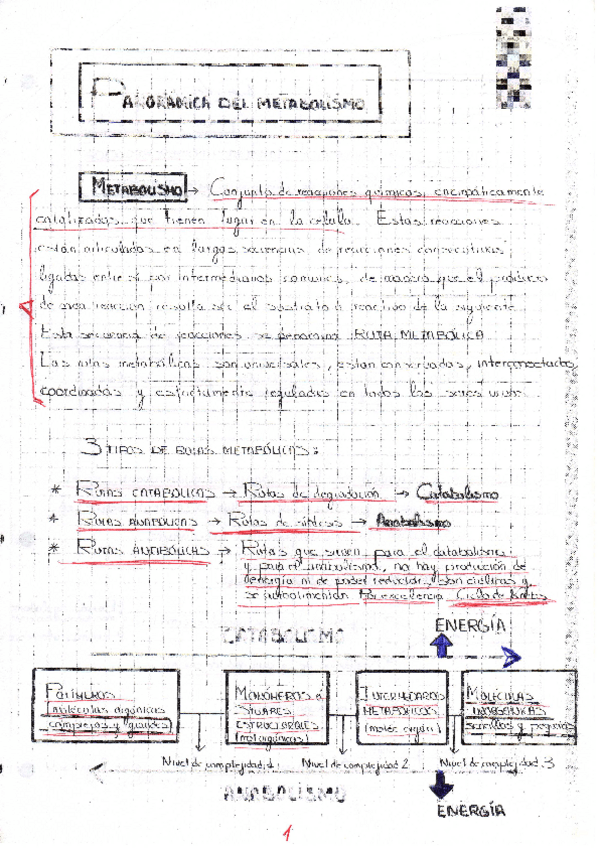 PANORÁMICA DEL METABOLISMO
METABOLISMO → Conjunto de reacciones químicas, enzimáticamente
catalizadas que tienen lugar en la celula. Estas reacciones
están articuladas en largas secuencias de reacciones consecutivas
ligadas entre sí por intermediarios comunes, de manera que el producto
de una reacción resulta ser el sustrato o reactivo de la siguiente
Esta secuencia de reacciones se denomina RUTA METABÓLICA
Las rutas metabólicas son universales, están conservadas, interconectadas,
coordinadas y estrictamente reguladas en todos los seres vivos
3 TIPOS DE RUTAS METABÓLICAS:
* RUTAS CATABOLICAS → Rutas de degradación → Catabolismo
* RUTAS ANABOLICAS → Rutas de síntesis → Anabolismo
* RUTAS → Rutas que sirven para el catabolismo
y para el anabolismo, no hay producción de
energía ni de poder reductor, son cíclicas y
se autoalimentan Por excelencia Ciclo de Krebs
CATABOLISMO ENERGÍA
POLÍMEROS MONÓMEROS o INTERMEDIARIOS MOLÉCULAS
(moléculas orgánicas METABÓLICOS INORGÁNICAS
complejas y grandes) ESTRUCTURALES sencillas y pequeñas
Nivel de complejidad 1 Nivel de complejidad 2 Nivel de complejidad 3
ANABOLISMO ENERGÍA
1